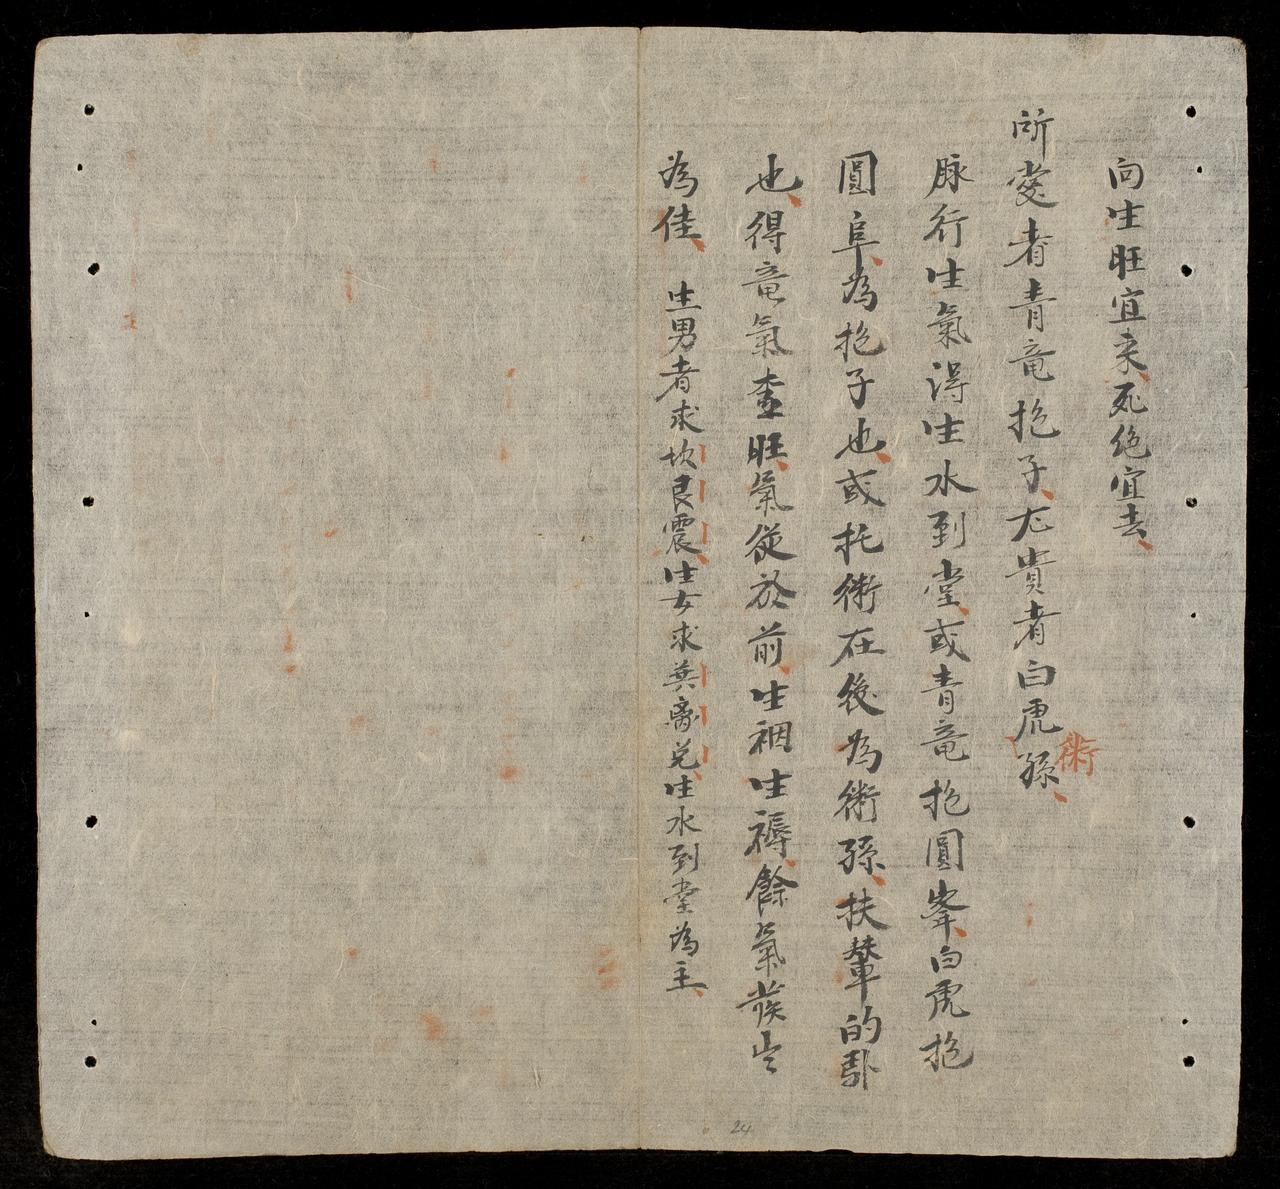 向生旺宜来死绝宜去
所愛者青竜抱子尤貴者白虎孫
術
脉行生氣得生水到堂或青竜抱圓峯白虎抱
圓阜為抱子也或托術在後為術孫扶輦的
也得竜氣旺氣從於前生裀生褥餘氣發出
為佳 生男者求坎艮震生女求巽离兑生水到堂為主
24